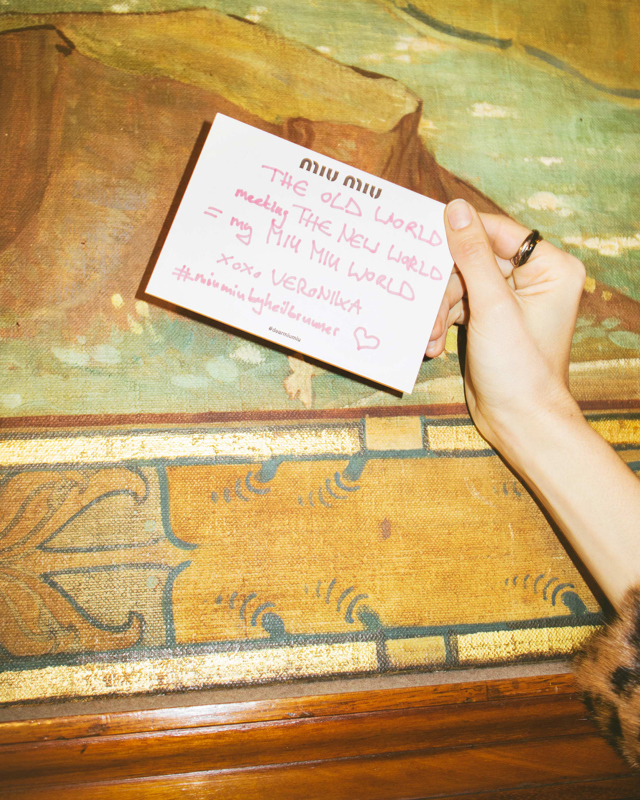 MIU MIU
THE OLD WORLD
meeting THE NEW WORLD
= my MIU MIU WORLD
xoxo VERONIKA
#miumiubyheilbrunner
#dearmiumiu